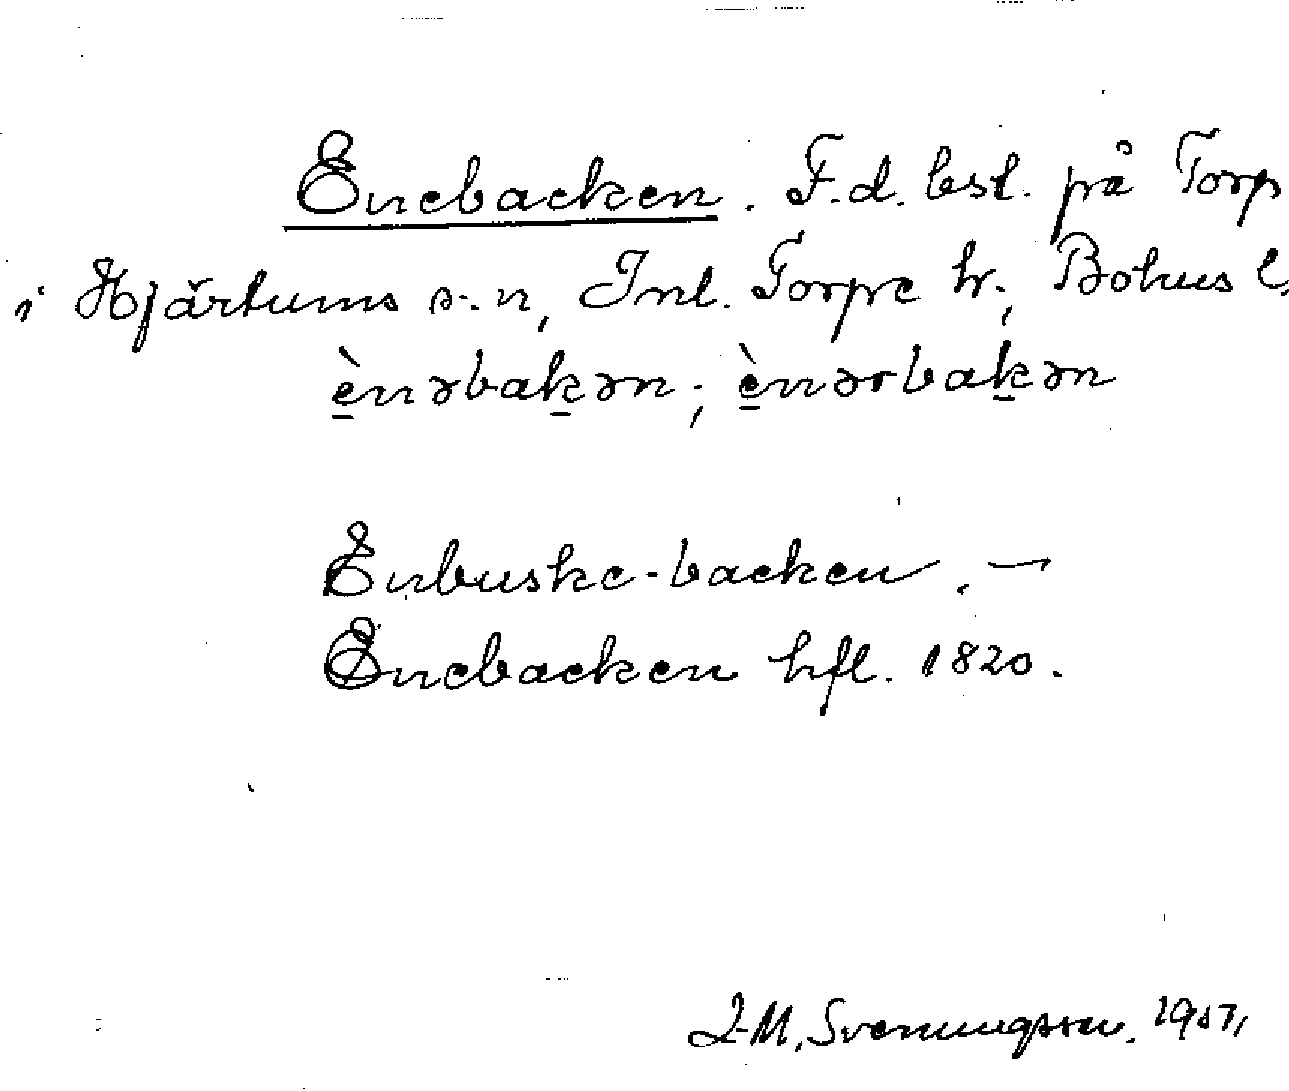 Enebacken. F.d. bst. på Torp
i Hjärtums s:n, Inl. Torpe hr., Bohus l.
ènəbak̲ən; ènərbak̲ən
Enbuske-backen. —
Enebacken hfl. 1820.
Svenungsson.